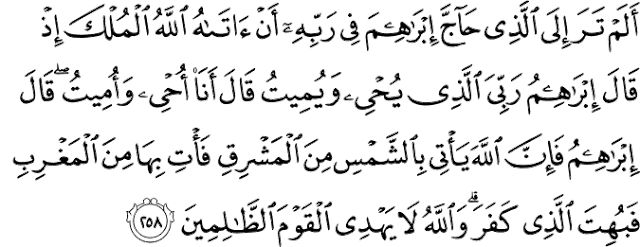 أَلَمْ تَرَ إِلَى ٱلَّذِى حَآجَّ إِبْرَٰهِـۧمَ فِى رَبِّهِۦٓ أَنْ ءَاتَىٰهُ ٱللَّهُ ٱلْمُلْكَ إِذْ
قَالَ إِبْرَٰهِـۧمُ رَبِّىَ ٱلَّذِى يُحْىِۦ وَيُمِيتُ قَالَ أَنَا۠ أُحْىِۦ وَأُمِيتُ ۖ قَالَ
إِبْرَٰهِـۧمُ فَإِنَّ ٱللَّهَ يَأْتِى بِٱلشَّمْسِ مِنَ ٱلْمَشْرِقِ فَأْتِ بِهَا مِنَ ٱلْمَغْرِبِ
فَبُهِتَ ٱلَّذِى كَفَرَ ۗ وَٱللَّهُ لَا يَهْدِى ٱلْقَوْمَ ٱلظَّـٰلِمِينَ ٢٥٨